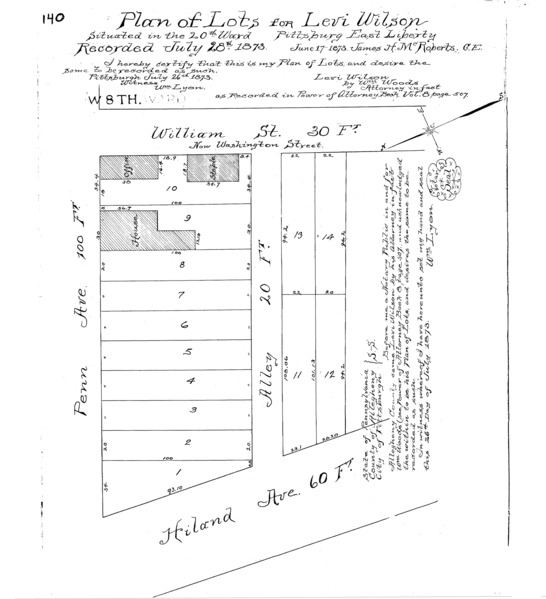 140
Plan of Lots for Levi Wilson
Situated in the 20th Ward Pittsburg East Liberty
Recorded July 28th 1873. June 17 1873. James H. McRoberts, C.E.
I hereby certify that this is my Plan of Lots, and desire the
same to be recorded as such.
Pittsburgh July 26th 1873.
Witness
Wm Lyon.
Levi Wilson
by Wm Woods
Attorney in fact
as Recorded in Power of Attorney Book Vol. 8, page 507.
W 8TH. WARD
William St. 30 Ft.
Now Washington Street.
Office
Stable
10
100
House
9
100
8
7
6
5
4
3
2
100
1
93.10
Penn Ave 100 Ft
Alley 20 Ft
22 22
13 14
94.2
22 20
11 12
108.06
101.03
94.2
Hiland Ave. 60 Ft.
State of Pennsylvania
County of Allegheny } S.S.
City of Pittsburgh
Before me a Notary Public in and for
Allegheny County came Levi Wilson by his Attorney in fact
Wm Woods (see Power of Attorney Book 8, page 507, and acknowledged
the within to be his Plan of Lots, and desires the same to be
recorded as such.
In witness whereof I have hereunto set my hand and seal
this 26th Day of July 1873.
Wm Lyon